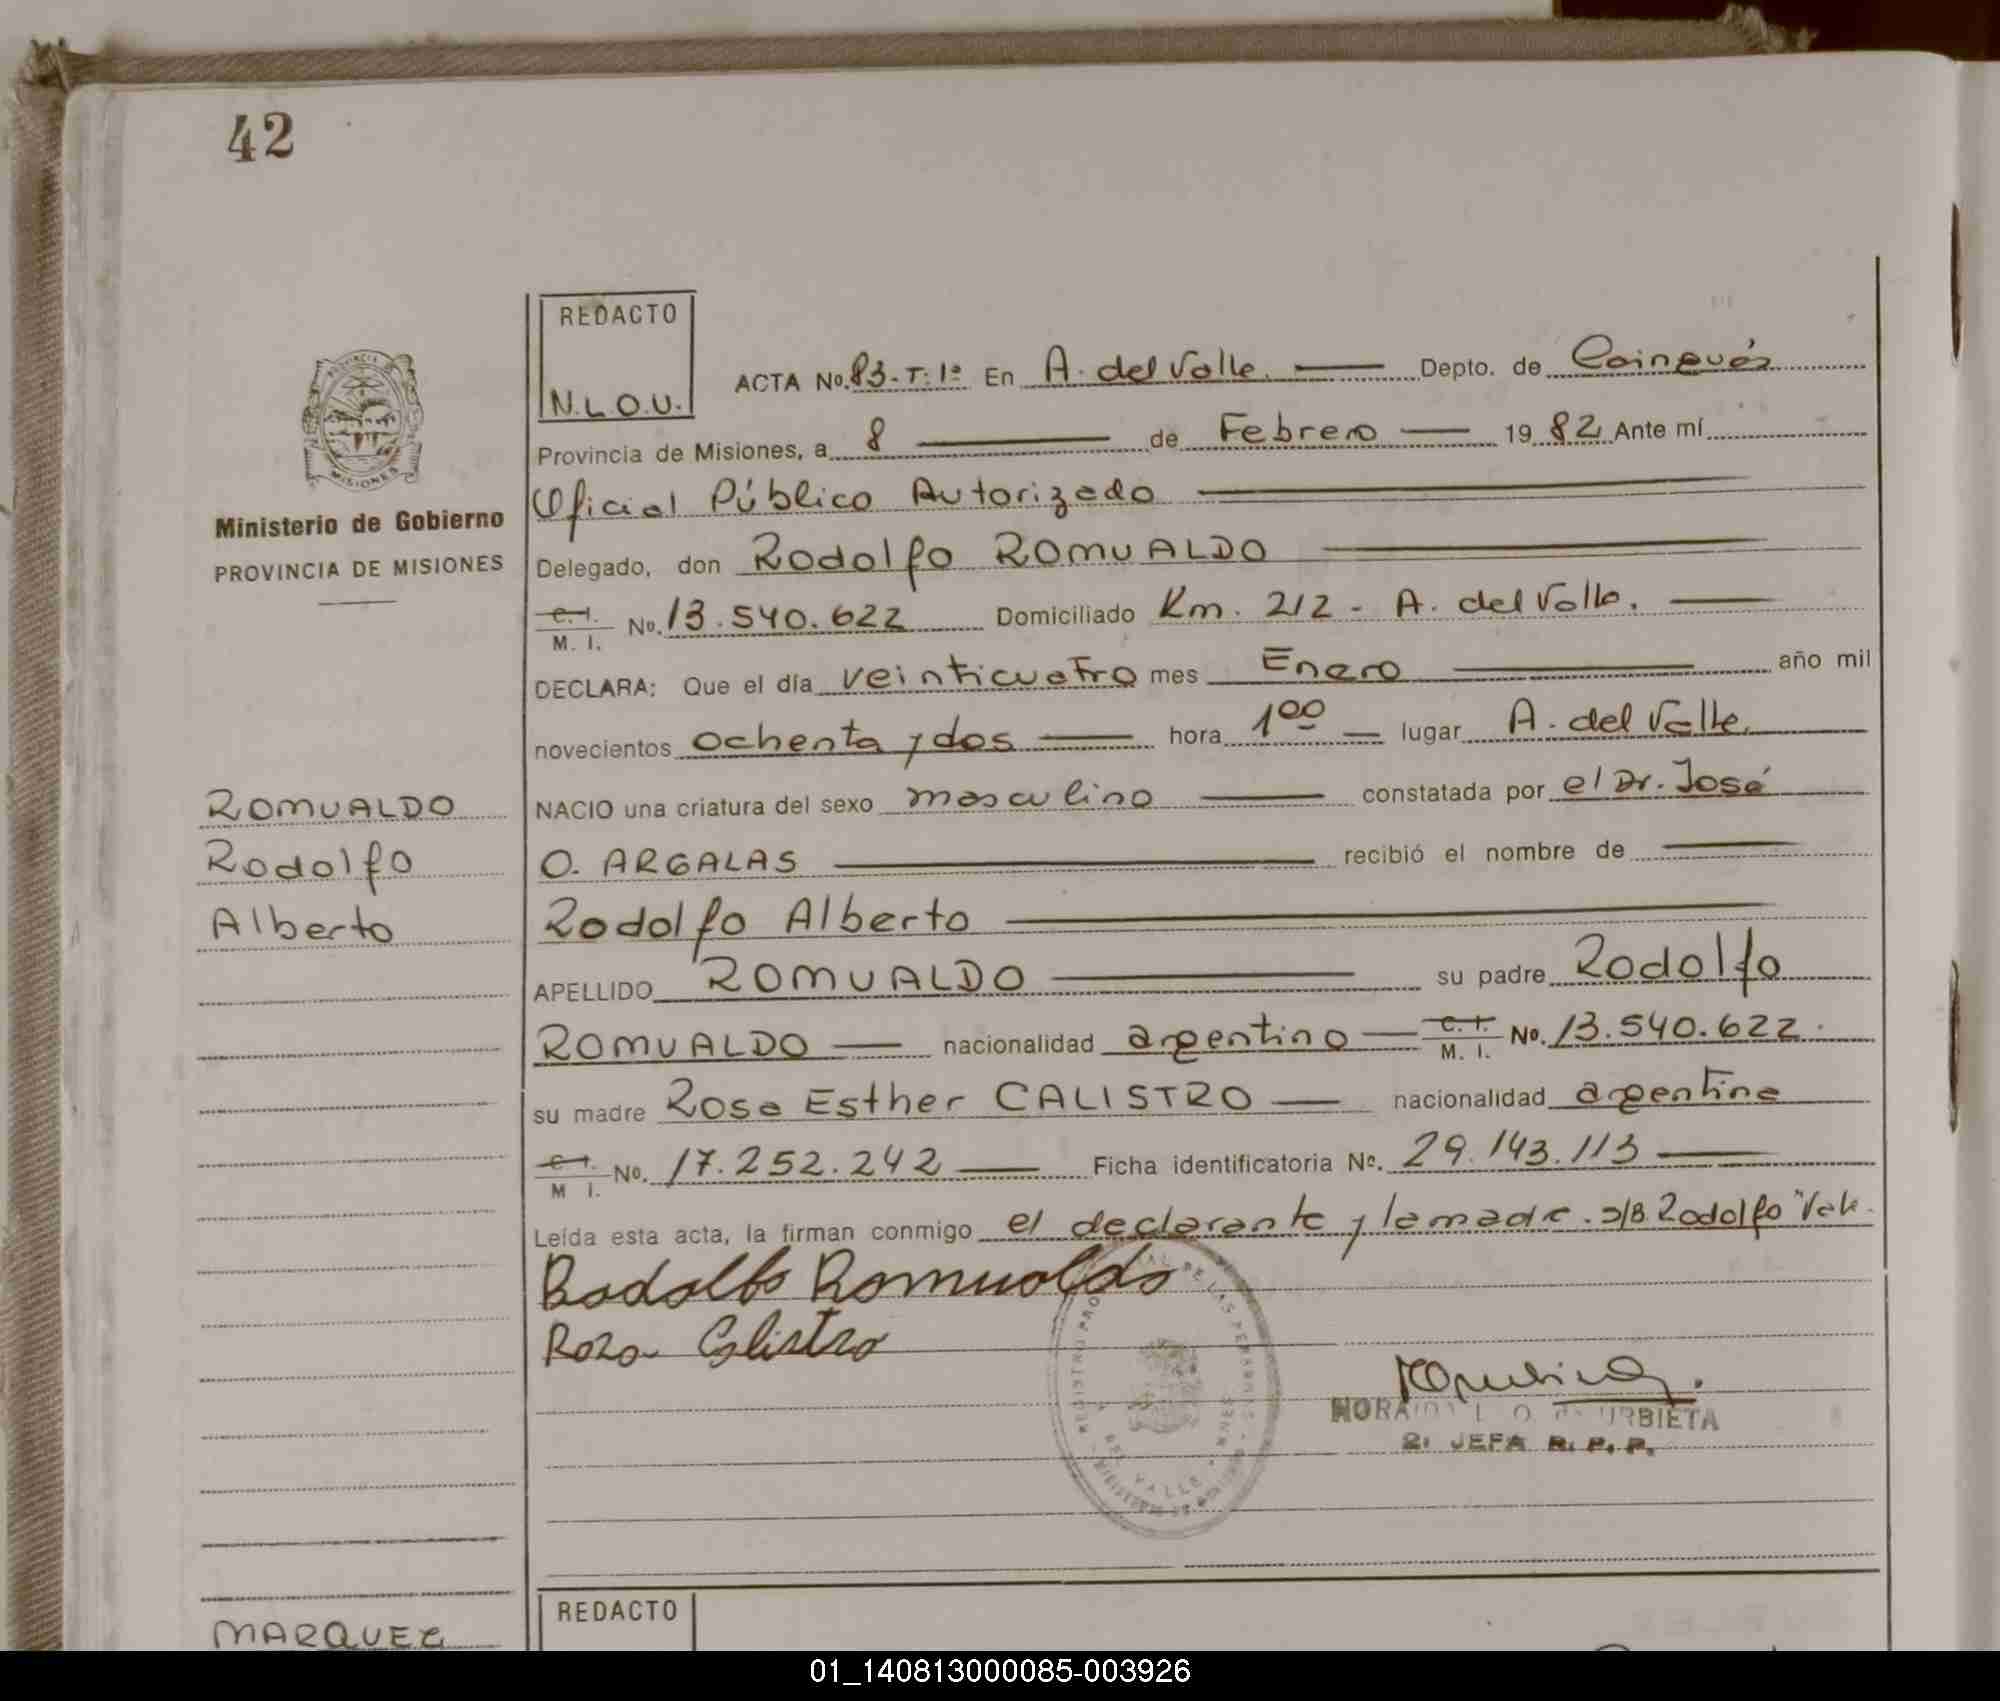 42
REDACTO
N.L.O.U.
ACTA No. 83-T:1º En A. del Valle. Depto. de Cainguás
Provincia de Misiones, a 8 de Febrero 1982 Ante mí
Oficial Público Autorizado
Delegado, don Rodolfo ROMUALDO
C. I. M. I. No. 13.540.622 Domiciliado Km. 212 - A. del Valle.
DECLARA: Que el día veinticuatro mes Enero año mil
novecientos ochenta y dos hora 1⁰⁰ lugar A. del Valle.
NACIO una criatura del sexo masculino constatada por el Dr. José
O. ARGALAS recibió el nombre de
Rodolfo Alberto
APELLIDO ROMUALDO su padre Rodolfo
ROMUALDO nacionalidad argentino C. I. M. I. No. 13.540.622.
su madre Rosa Esther CALISTRO nacionalidad argentina
C. I. M I. No. 17.252.242 Ficha identificatoria No. 29.143.113
Leída esta acta, la firman conmigo el declarante y la madre. s/B. Rodolfo "Vale.
Rodolfo Romualdo
Roza Calistro
URBIETA
2. JEFA R. P. P.
PROVINCIA DE
MISIONES
Ministerio de Gobierno
PROVINCIA DE MISIONES
ROMUALDO
Rodolfo
Alberto
MARQUEZ
REDACTO
01_140813000085-003926